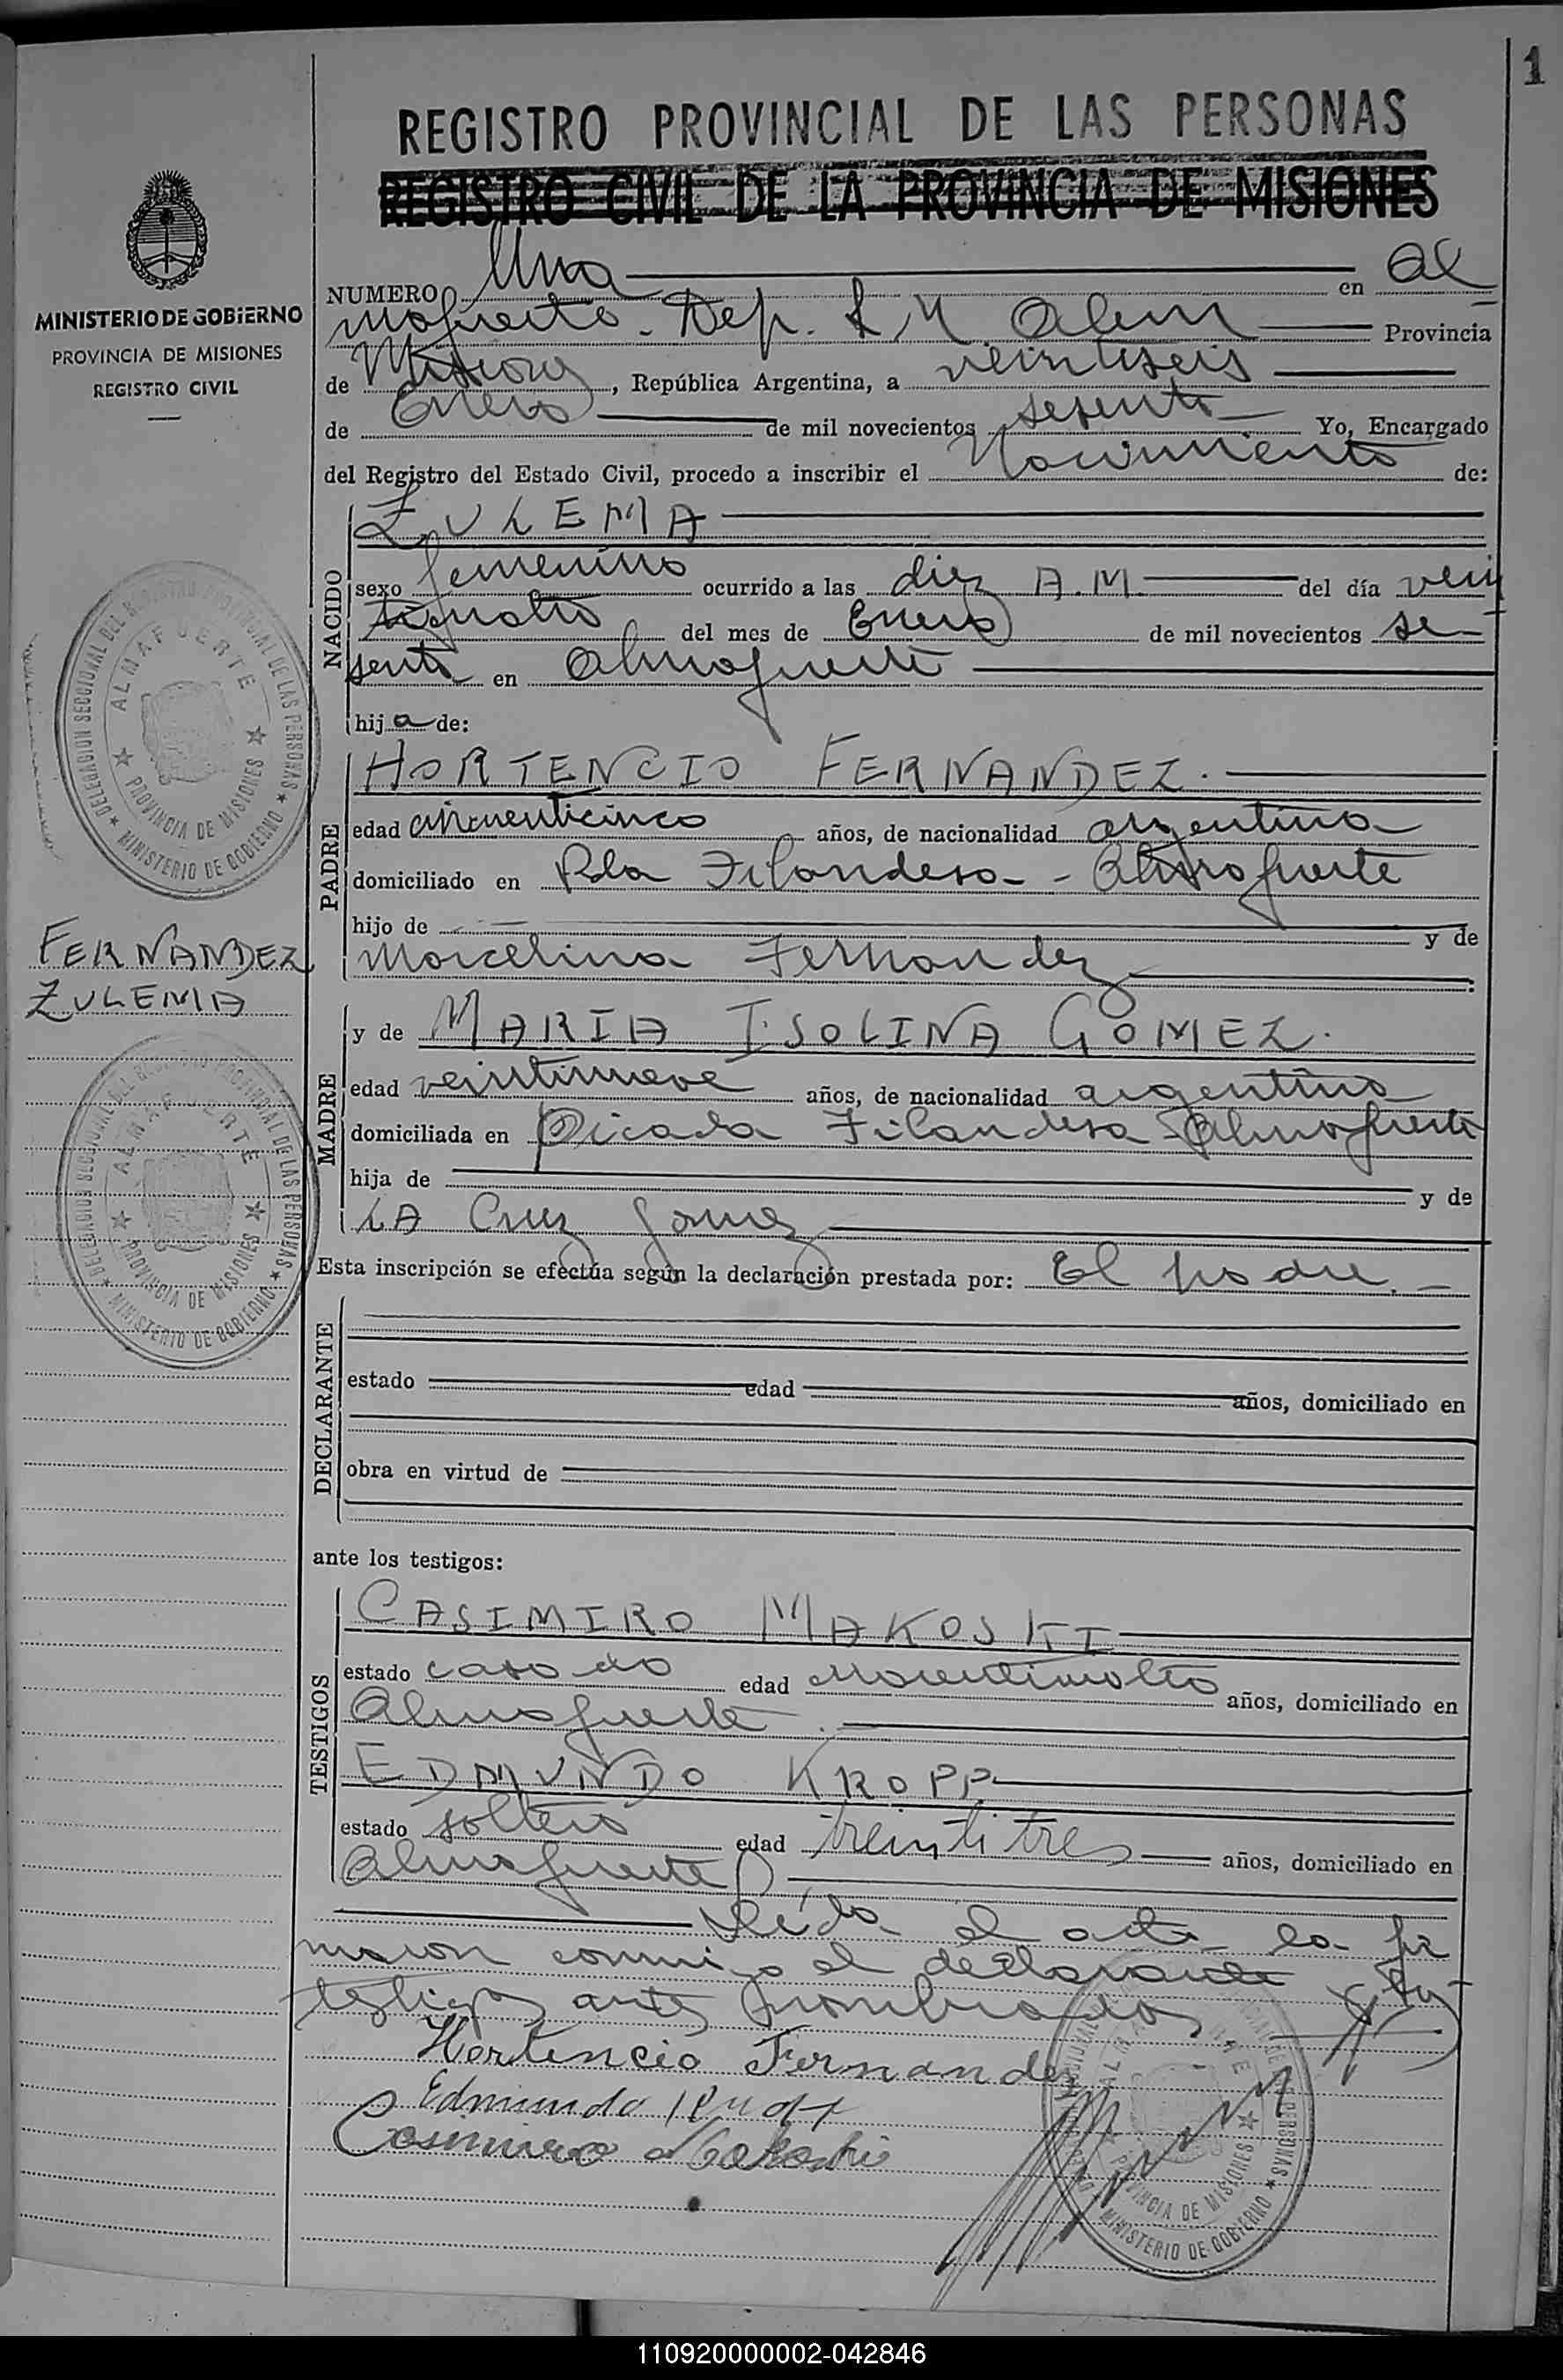 1
REGISTRO PROVINCIAL DE LAS PERSONAS
REGISTRO CIVIL DE LA PROVINCIA DE MISIONES
MINISTERIO DE GOBIERNO
PROVINCIA DE MISIONES
REGISTRO CIVIL
NUMERO Uno en Al
mafuerte - Dep. L N Alem Provincia
de Misiones, República Argentina, a veintiseis
de Enero de mil novecientos sesenta Yo, Encargado
del Registro del Estado Civil, procedo a inscribir el Nacimiento de:
NACIDO
ZULEMA
sexo femenino ocurrido a las diez A.M. del día vein
ticuatro del mes de Enero de mil novecientos se-
senta en Almafuerte
hija de:
PADRE
HORTENCIO FERNANDEZ.
edad cincuenticinco años, de nacionalidad argentina
domiciliado en Pda Filandesa - Almafuerte
hijo de y de
Marcelina Fernandez
FERNANDEZ
ZULEMA
MADRE
y de MARIA ISOLINA GOMEZ.
edad veintinueve años, de nacionalidad argentina
domiciliada en Picada Filandesa - Almafuerte
hija de y de
LA Cruz Gomez
Esta inscripción se efectúa según la declaración prestada por: El padre.-
DECLARANTE
estado edad años, domiciliado en
obra en virtud de
ante los testigos:
TESTIGOS
CASIMIRO MAKOSKI
estado casado edad años, domiciliado en
Almafuerte.
EDMUNDO KROPP
estado soltero edad treintitres años, domiciliado en
Almafuerte
Leída el acta la fir
maron conmigo el declarante y los
testigos antes nombrados
Hortencio Fernandez
Edmundo
Casimiro Makoski
DELEGACION SECCIONAL DEL REGISTRO PROVINCIAL DE LAS PERSONAS
ALMAFUERTE
PROVINCIA DE MISIONES
MINISTERIO DE GOBIERNO
DELEGACION SECCIONAL DEL REGISTRO PROVINCIAL DE LAS PERSONAS
ALMAFUERTE
PROVINCIA DE MISIONES
MINISTERIO DE GOBIERNO
PROVINCIA DE MISIONES
MINISTERIO DE GOBIERNO
110920000002-042846